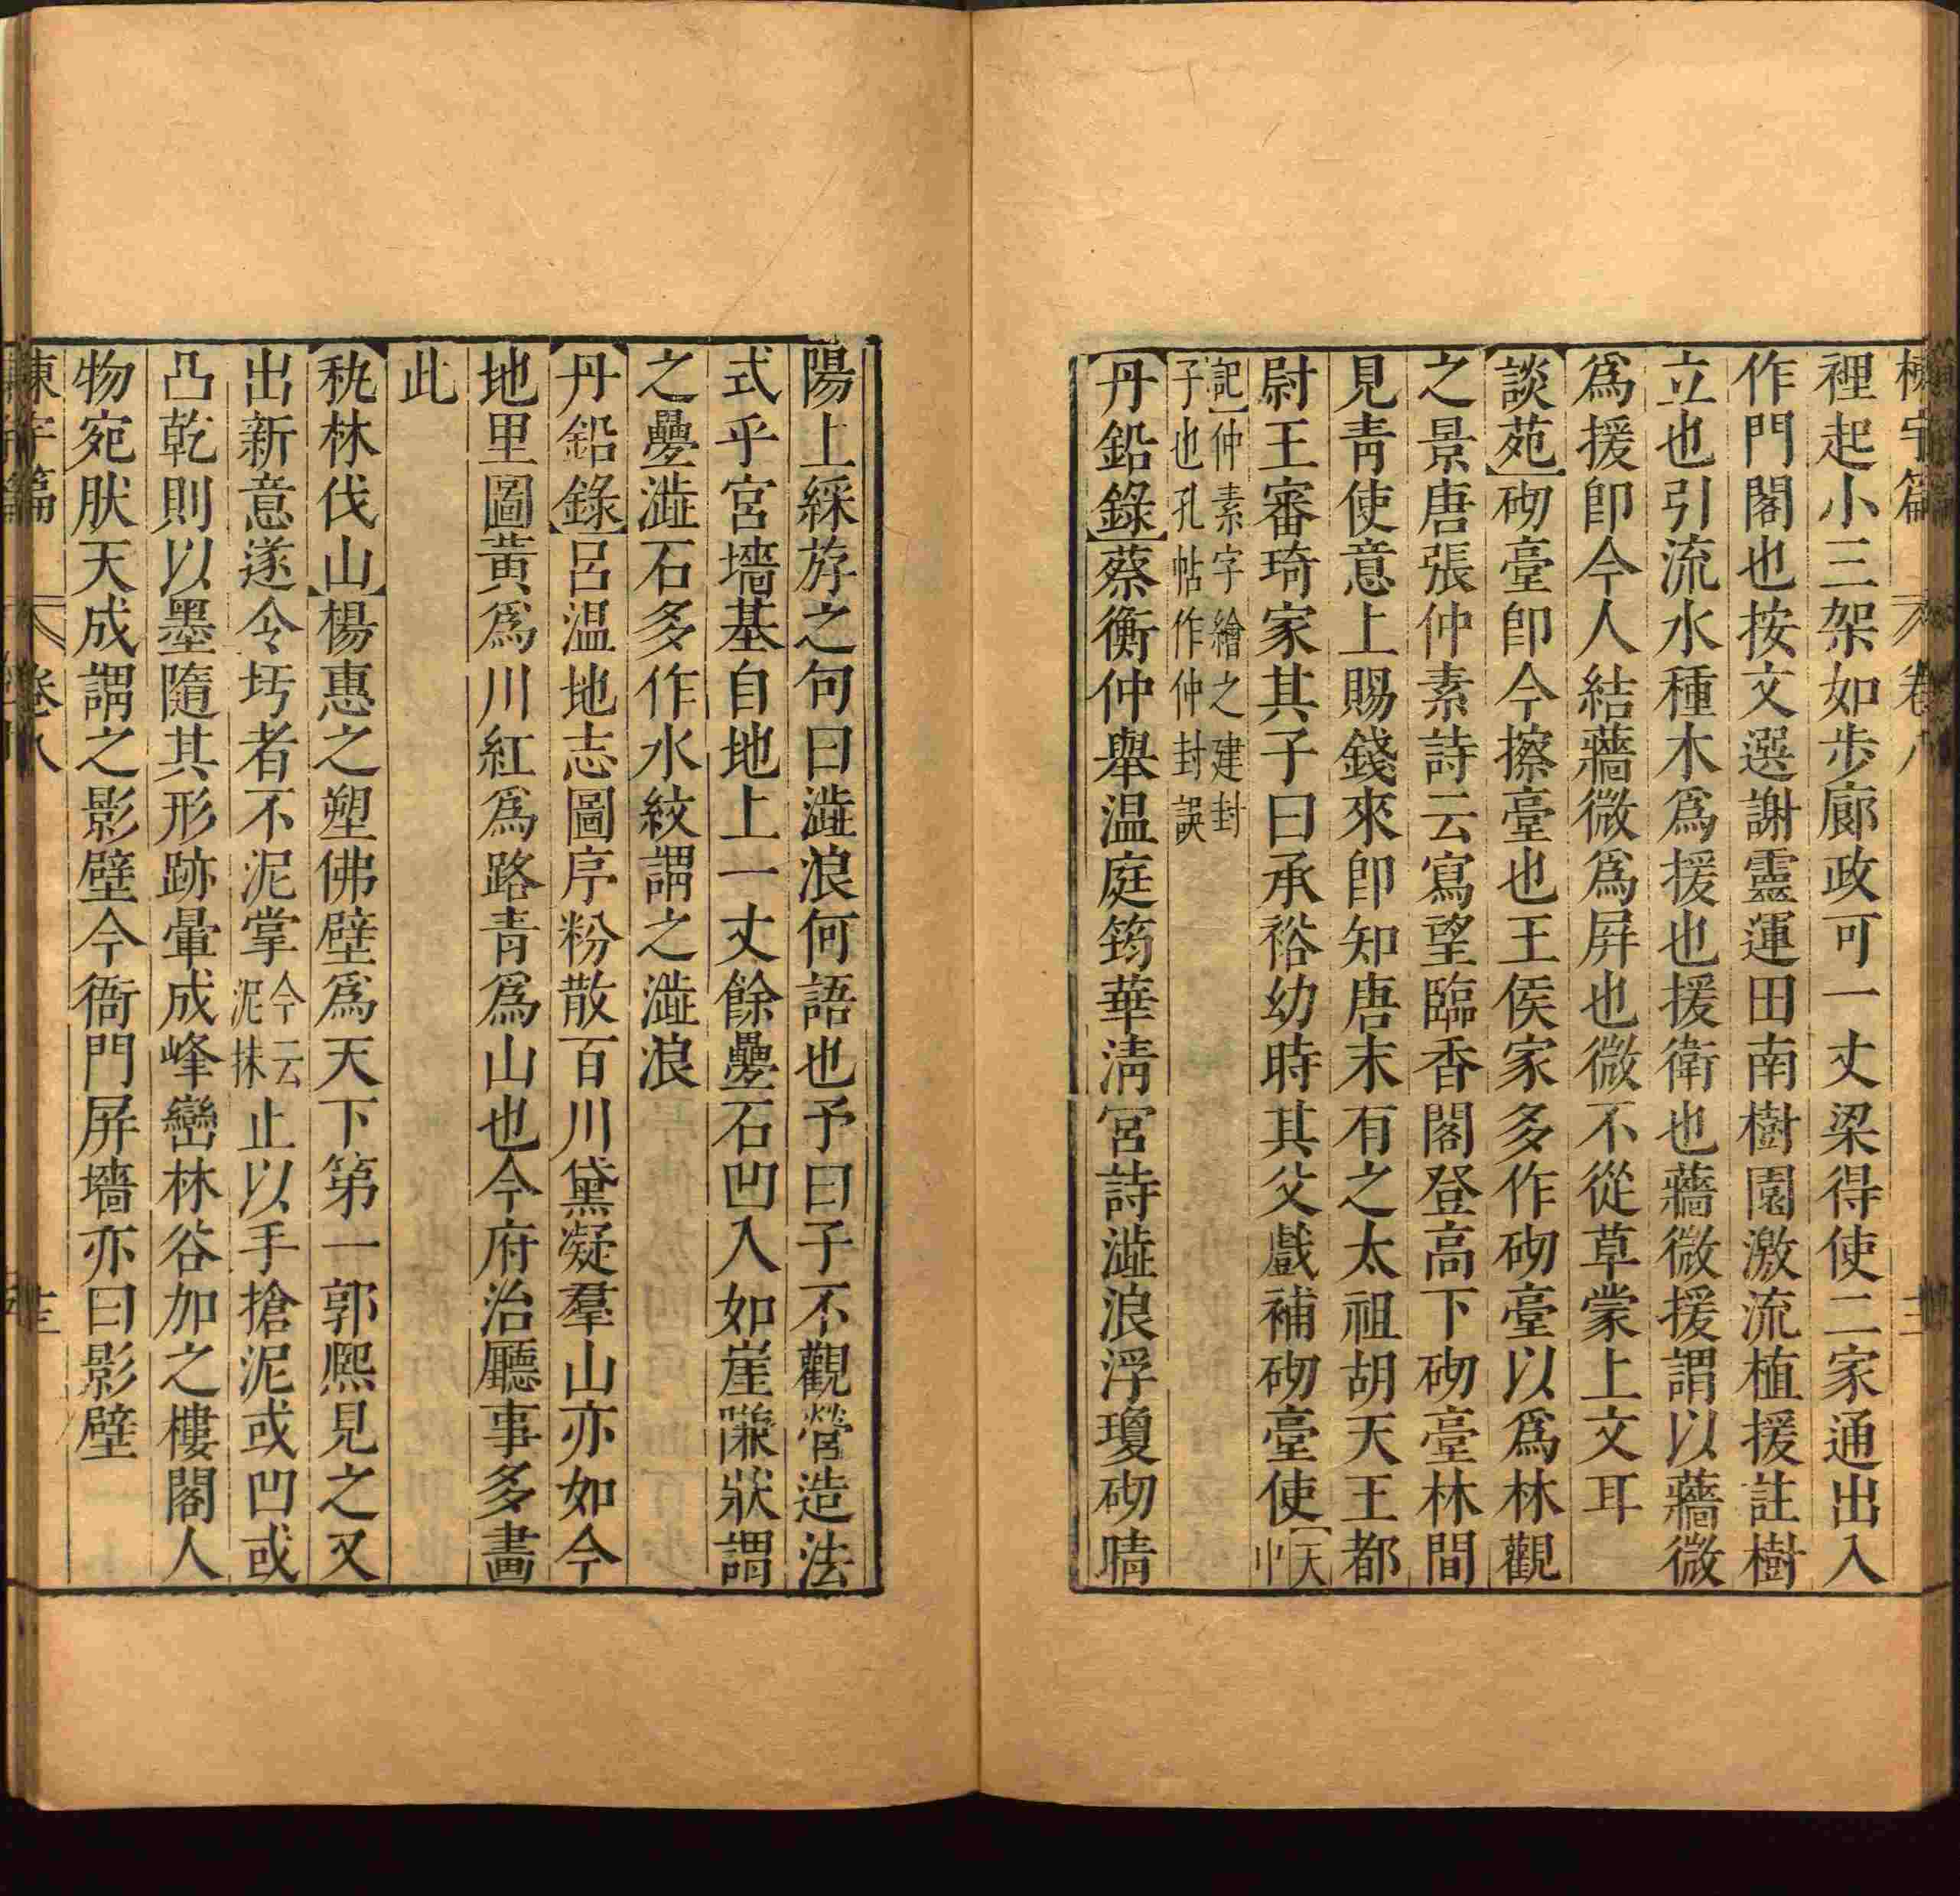 棟宇篇 卷八
裡起小三架如步廊政可一丈梁得使二家通出入
作門閣也按文選謝靈運田南樹園激流植援註樹
立也引流水種木爲援也援衛也蘠微援謂以蘠微
爲援卽今人結蘠微爲屛也微不從草蒙上文耳
談苑砌臺卽今擦臺也王侯家多作砌臺以爲林觀
之景唐張仲素詩云寫望臨香閣登高下砌臺林間
見靑使意上賜錢來卽知唐末有之太祖胡天王都
尉王審琦家其子曰承裕幼時其父戲補砌臺使天中
記仲素字繪之建封
子也孔帖作仲封誤
丹鉛錄蔡衡仲舉温庭筠華淸宮詩澁浪浮瓊砌晴
陽上綵斿之句曰澁浪何語也予曰子不觀營造法
式乎宮墻基自地上一丈餘疊石凹入如崖隒狀謂
之疊澁石多作水紋謂之澁浪
丹鉛錄呂温地志圖序粉散百川黛凝羣山亦如今
地里圖黃爲川紅爲路靑爲山也今府治廳事多畫
此
秇林伐山楊惠之塑佛壁爲天下第一郭熙見之又
出新意遂令圬者不泥掌今云泥抹止以手搶泥或凹或
凸乾則以墨隨其形跡暈成峰巒林谷加之樓閣人
物宛肰天成謂之影壁今衙門屛墻亦曰影壁
棟宇篇 卷八